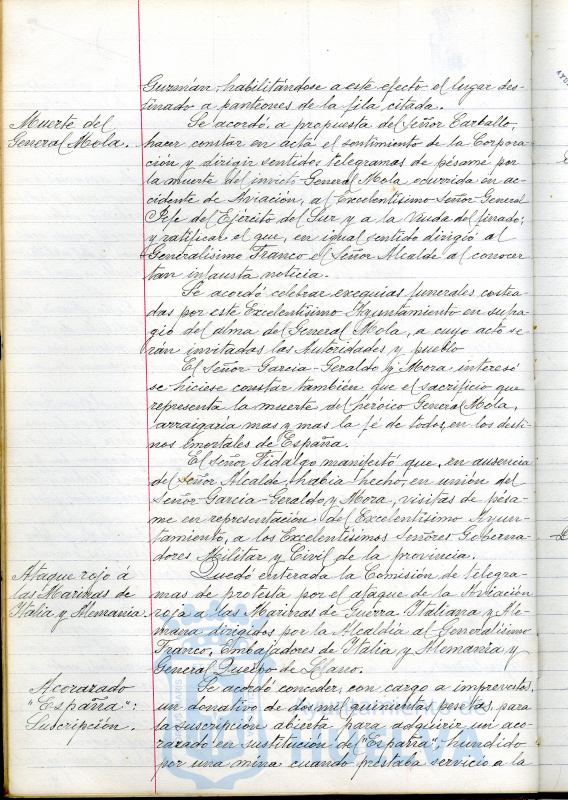 Guzmán, habilitándose a este efecto el lugar des-
tinado a panteones de la fila citada.
Muerte del
General Mola.
Se acordó, a propuesta del Señor Carballo,
hacer constar en acta el sentimiento de la Corpora-
ción y dirigir sentidos telegramas de pésame por
la muerte del invicto General Mola ocurrida en ac-
cidente de Aviación, al Excelentísimo Señor General
Jefe del Ejército del Sur y a la viuda del finado;
y ratificar el que, en igual sentido dirigió al
Generalísimo Franco el Señor Alcalde al conocer
tan infausta noticia.
Se acordó celebrar exequias funerales costea-
das por este Excelentísimo Ayuntamiento en sufra-
gio del alma del General Mola, a cuyo acto se-
rán invitadas las Autoridades y pueblo
El Señor García-Geraldo y Mora interesó
se hiciese constar también que el sacrificio que
representa la muerte del heróico General Mola,
arraigaria mas y mas la fé de todos en los desti-
nos inmortales de España.
El Señor Fidalgo manifestó que, en ausencia
del Señor Alcalde, habia hecho, en unión del
Señor García-Geraldo y Mora, visitas de pésa-
me en representación del Excelentísimo Ayun-
tamiento, a los Excelentísimos Señores Goberna-
dores Militar y Civil de la provincia.
Ataque rojo á
las Marinas de
Italia y Alemania.
Quedó enterada la Comisión de telegra-
mas de protesta por el ataque de la Aviación
roja a las Marinas de Guerra Italiana y Ale-
mana dirigidos por la Alcaldía al Generalísimo
Franco, Embajadores de Italia y Alemania y
General Queipo de Llano.
Acorazado
"España":
Suscripción.
Se acordó conceder, con cargo a imprevistos,
un donativo de dos mil quinientas pesetas, para
la suscripción abierta para adquirir un aco-
razado en sustitución del "España", hundido
por una mina cuando prestaba servicio a la